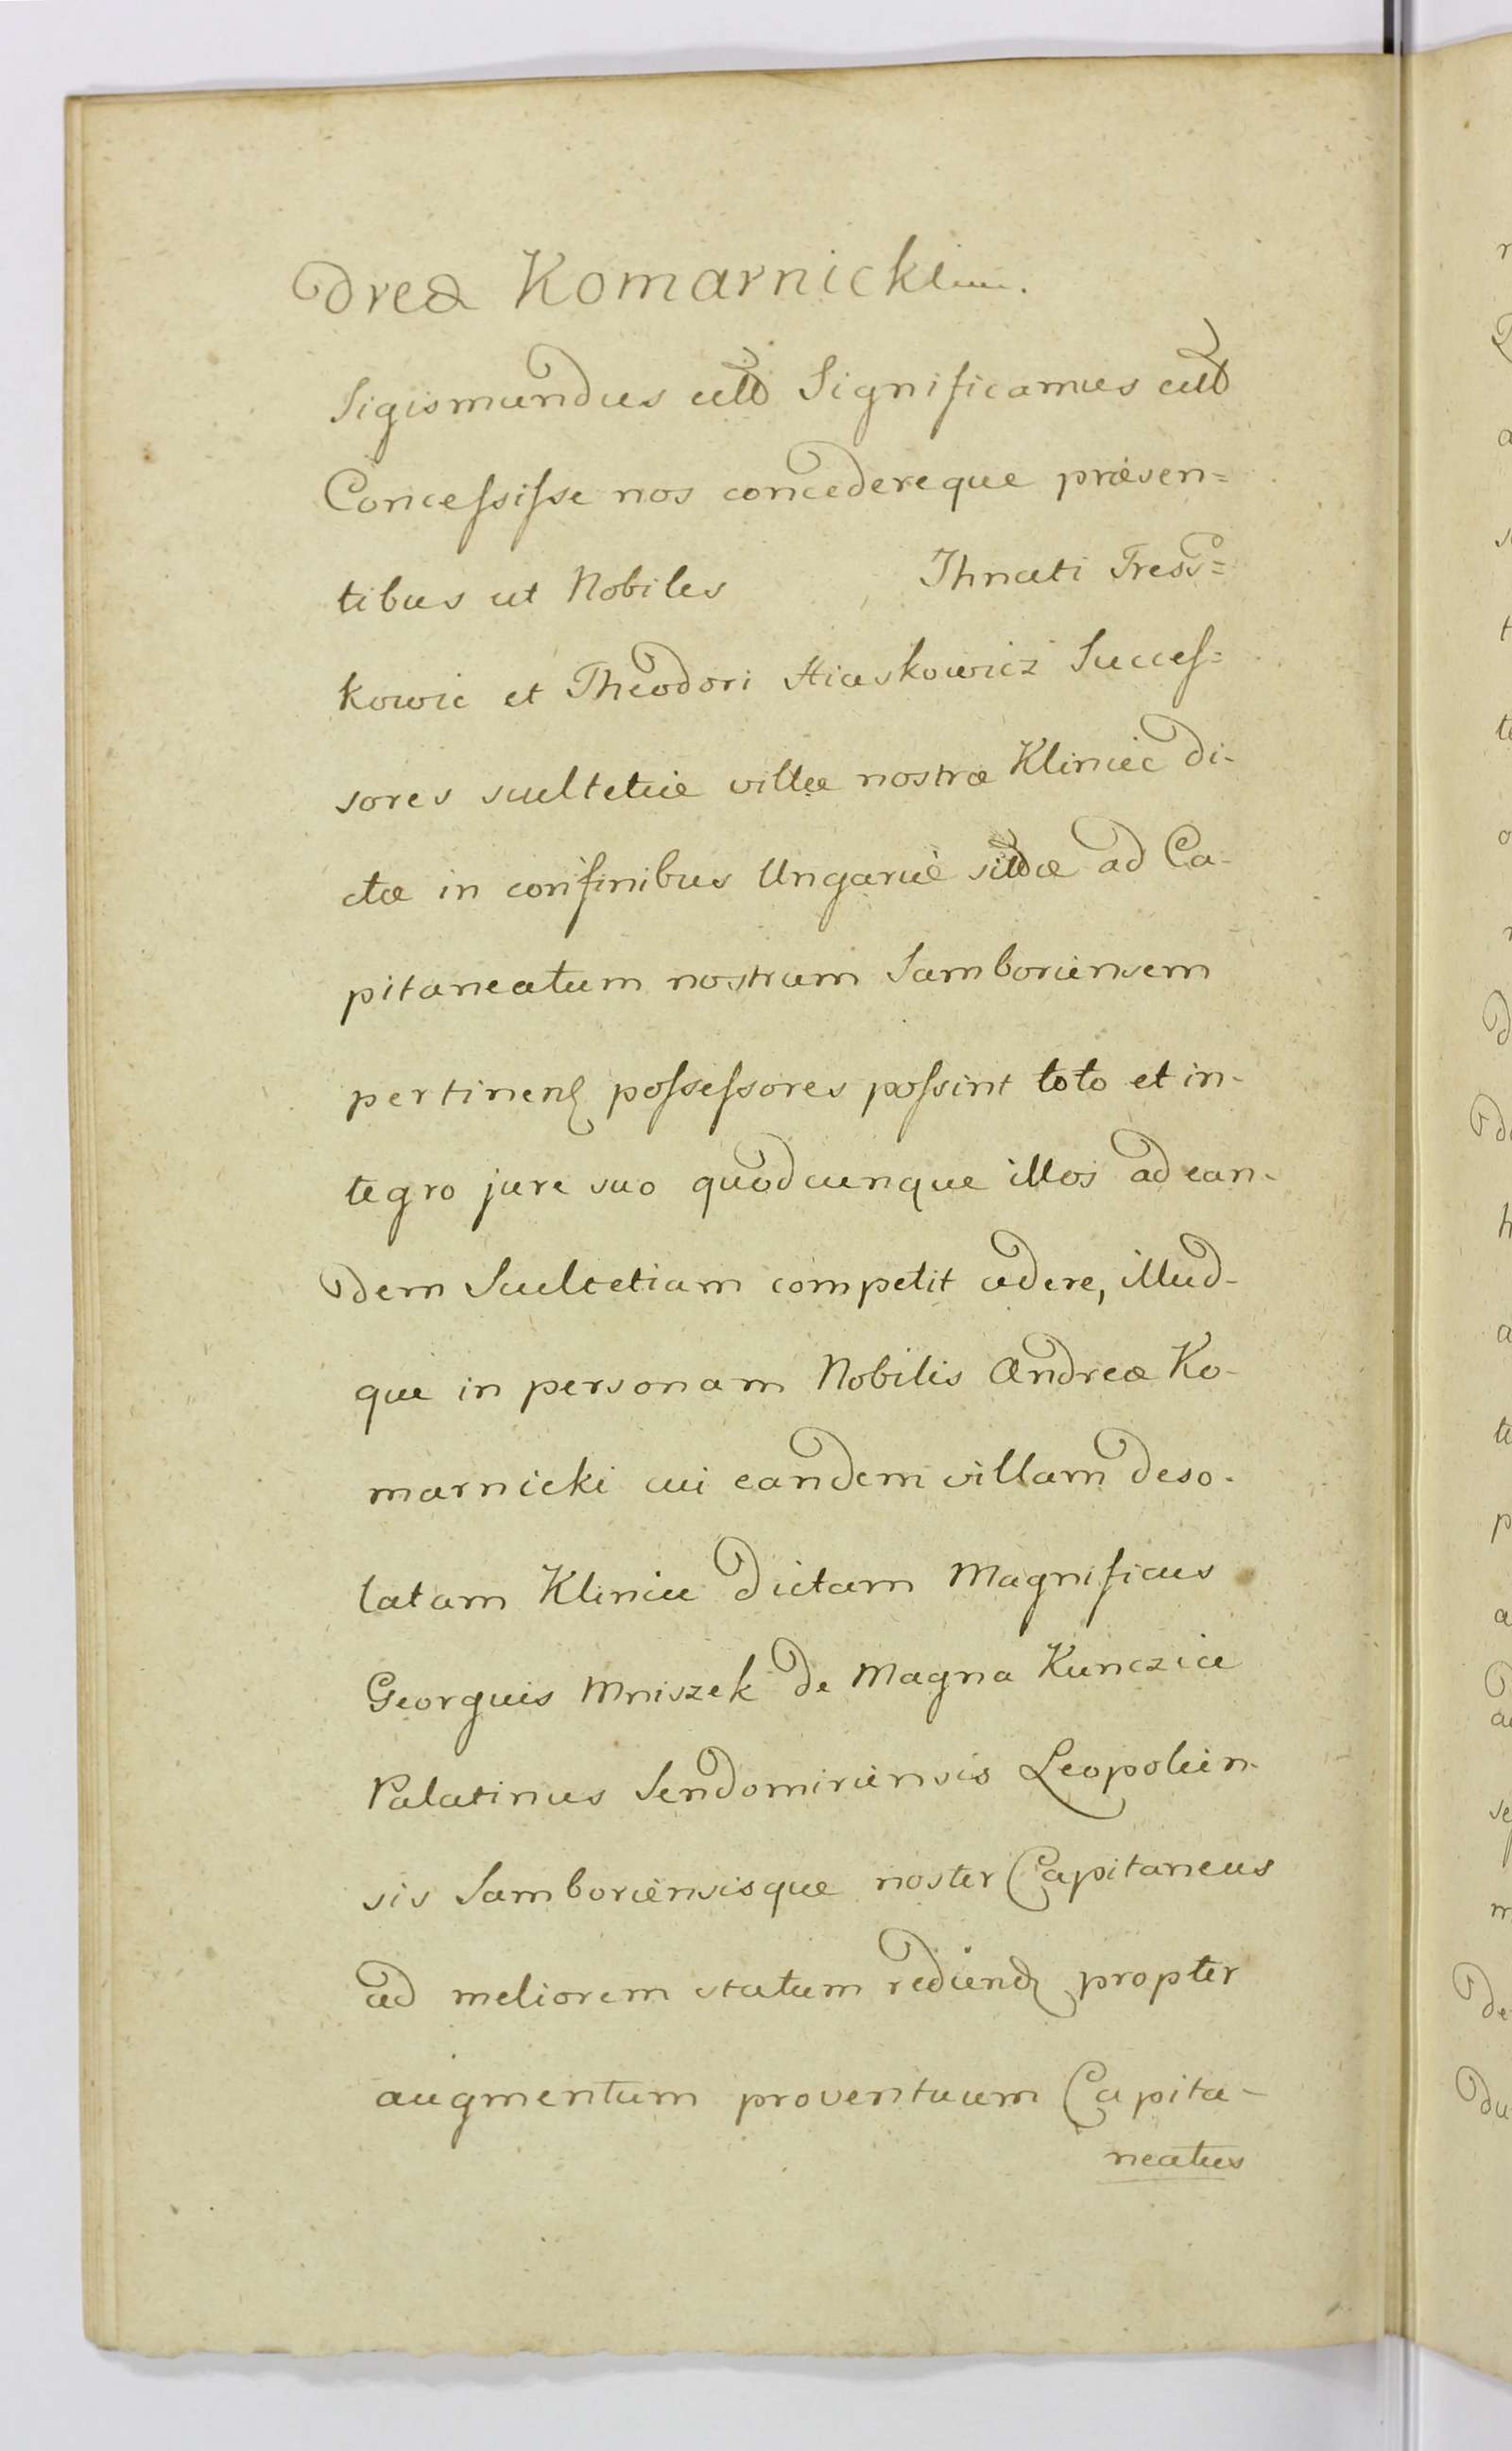 dreæ Komarnicki.
Sigismundus etc Significamus etc
Concessisse nos concedereque præsen=
tibus ut Nobiles Ihnati Tress=
kowic et Theodori Hiaskowicz Succes=
sores scultetiæ villæ nostræ Kliniec di-
ctæ in confinibus Ungariæ sitæ ad Ca-
pitaneatum nostrum Samboriensem
pertinen possessores possint toto et in-
tegro jure suo quodcunque illos ad ean-
dem Scultetiam competit cedere, illud-
que in personam Nobilis Andreæ Ko-
marnicki cui eandem villam deso-
latam dictam Magnificus
Georgius Mniszek de Magna Kunczice
Palatinus Sendomiriensis Leopolien-
sis Samboriensisque noster Capitaneus
ad meliorem statum propter
augmentum proventuum Capita-
neatus